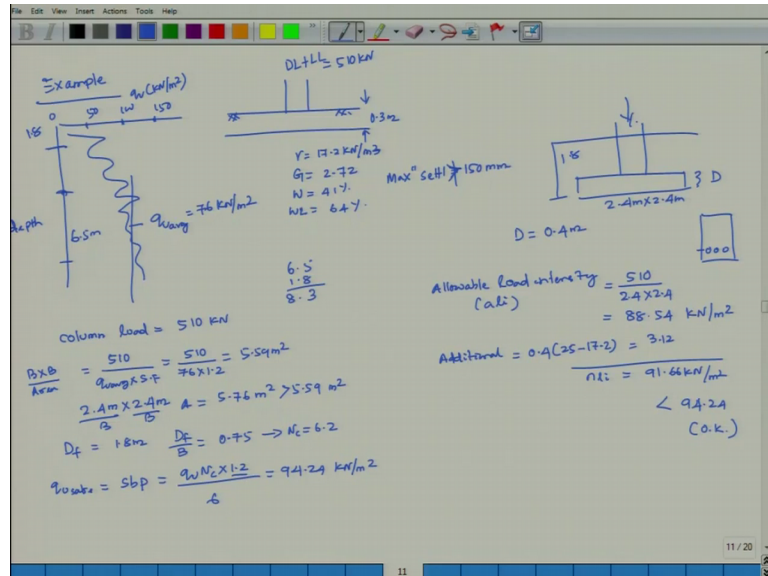 File Edit View Insert Actions Tools Help
B I
Example
qu (kN/m²)
0 50 100 150
1.8
depth
6.5m
quavg = 76 kN/m²
DL+LL = 510 kN
0.3m
γ = 17.2 kN/m3
G = 2.72
W = 41%
WL = 64%
6.5
1.8
8.3
Maxm settl ≯ 150mm
1.8
D
2.4m x 2.4m
D = 0.4m
column load = 510 KN
BxB
Area = 510 / quavg x S.F = 510 / 76 x 1.2 = 5.59m²
2.4m x 2.4m A = 5.76 m² > 5.59 m²
B B
Df = 1.8m Df/B = 0.75 → Nc = 6.2
qusafe = sbp = qu Nc x 1.2 / 6 = 94.24 kN/m²
Allowable load intensity = 510 / 2.4 x 2.4
(ali)
= 88.54 kN/m²
Additional = 0.4(25-17.2) = 3.12
nli = 91.66 kN/m²
< 94.24
(O.K.)
11 / 20
11